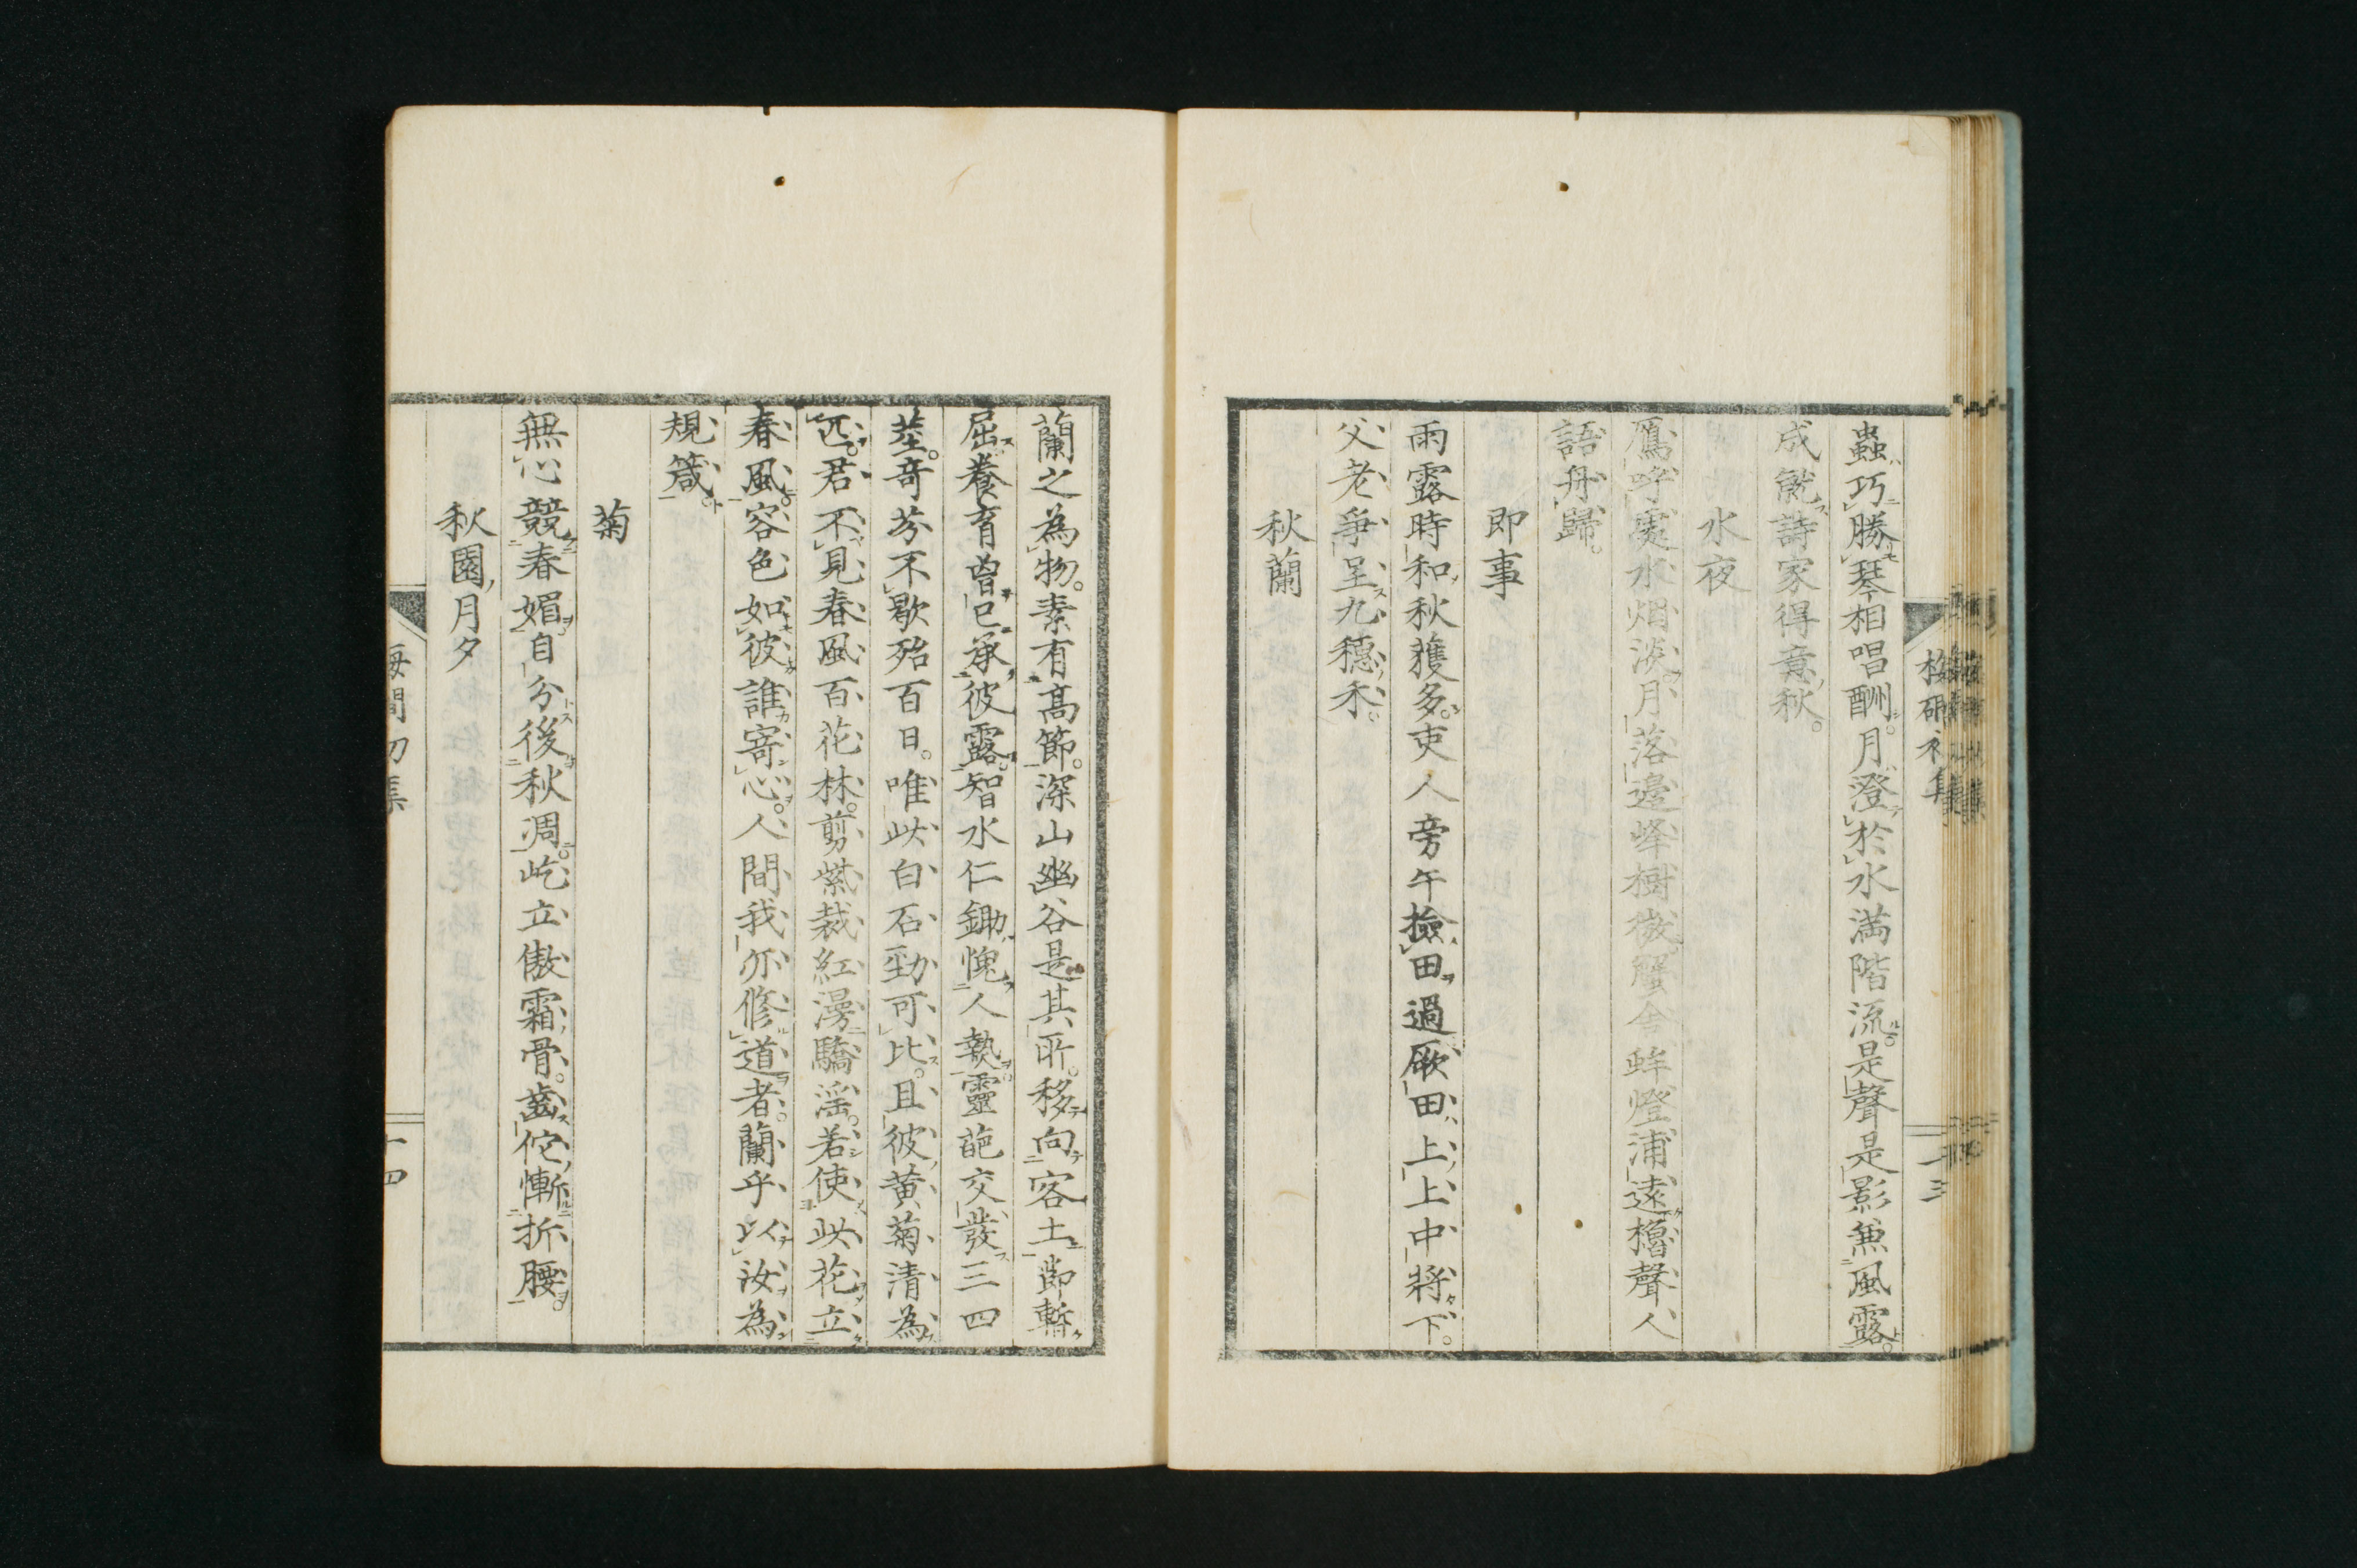 蟲巧勝琴相唱酬月澄於水満階流是聲是影兼風露
成就詩家得意秋
水夜
鴈呼處水烟淡月落邊峰樹微蟹舎蚌燈浦遠櫓聲人
語舟歸
即事
雨露時和秋獲多吏人旁午撿田過厥田上上中將下
父老爭呈九穗禾
秋蘭
蘭之為物素有高節深山幽谷是其所移向客土節暫
屈養育曽已承彼露智水仁鋤愧人執靈葩交發三四
莖奇芬不歇殆百日唯此白石勁可比且彼黄菊清為
匹君不見春風百花林剪紫裁紅漫驕淫若使此花立
春風容色如彼誰寄心人間我亦修道者蘭乎以汝為
規箴
菊
無心競春媚自分後秋凋屹立傲霜骨齒佗慚折腰
秋園月夕
十四